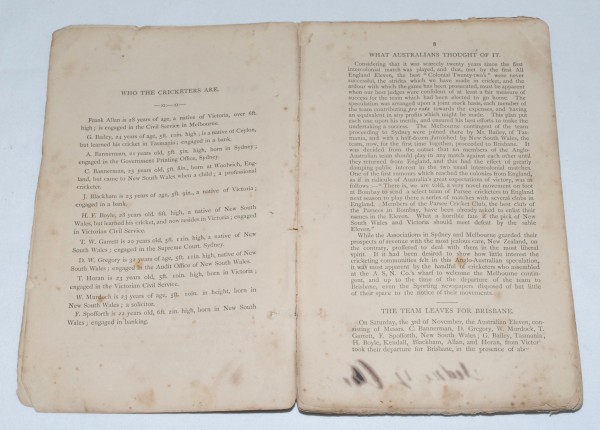 WHO THE CRICKETERS ARE.
Frank Allan is 28 years of age, a native of Victoria, over 6ft
high; is engaged in the Civil Service in Melbourne.
G. Bailey, 24 years of age, 5ft. 10in. high; is a native of Ceylon,
but learned his cricket in Tasmania; engaged in a bank.
A. Bannerman, 22 years old, 5ft. 5in. high, born in Sydney;
engaged in the Government Printing Office, Sydney.
C. Bannerman, 23 years old, 5ft. 8in., born at Woolwich, Eng-
land, but came to New South Wales when a child; a professional
cricketer.
J. Blackham is 23 years of age, 5ft. 9in., a native of Victoria;
engaged in a bank.
H. F. Boyle, 28 years old, 6ft. high, a native of New South
Wales, but learned his cricket, and now resides in Victoria; engaged
in Victorian Civil Service.
T. W. Garrett is 20 years old, 5ft. 11in. high, a native of New
South Wales; engaged in the Supreme Court, Sydney.
D. W. Gregory is 32 years of age, 5ft. high, native of New
South Wales; engaged in the Audit Office of New South Wales.
T. Horan is 23 years of age, 5ft. 10in. high, born in Victoria;
engaged in the Victorian Civil Service.
W. Murdoch is 23 years of age, 5ft. 10in. in height, born in
New South Wales; a solicitor.
F. Spofforth is 23 years old, 6ft. 2in. high, born in New South
Wales; engaged in banking.
8
WHAT AUSTRALIANS THOUGHT OF IT.
Considering that it was scarcely twenty years since the first
intercolonial match was played, and that, not by the first All
England Eleven, the best "Colonial Twenty-two's" were never
successful, the strides which we have made in cricket, and the
ardour with which the game has been prosecuted, must be apparent
when our best judges were confident of at least a fair measure of
success for the team which had been elected to go home. The
speculation was arranged upon a joint stock basis, each member of
the team contributing pro rata towards the expenses, and having
an equivalent in any profits which might be made. This plan put
each one upon his mettle, and ensured his best efforts to make the
undertaking a success. The Melbourne contingent of the team
proceeding to Sydney were joined there by Mr. Bailey, of Tas-
mania, and with a half-dozen furnished by New South Wales, the
team, now, for the first time together, proceeded to Brisbane. It
was decided from the outset that no members of the Anglo-
Australian team should play in any match against each other until
they returned from England, and this had the effect of greatly
damping public interest in the two usual intercolonial matches.
One of the first rumours which reached the colonies from England,
as if in Australia's great expectations of victory, was as
follows:—"There is, we are told, a very novel movement on foot
at Bombay to send a select team of Parsee cricketers to England
next season to play there a series of matches with several clubs in
England. Members of the Parsee Cricket Club, the best club of
the Parsees in Bombay, have been already asked to enlist their
names in the Eleven. What a horrible fate if the pick of New
South Wales and Victoria should meet defeat by the sable
Eleven."
While the Associations in Sydney and Melbourne guarded their
prospects of revenue with the most jealous care, New Zealand, on
the contrary, proffered to deal with them in the most liberal
spirit. If it had been desired to show how little interest the
cricketing communities felt in this Anglo-Australian speculation,
it will most apparent by the handful of cricketers who assembled
at the A. S. N. Co.'s wharf to welcome the Melbourne contin-
gent, and up to the time of the departure of the team to
Brisbane, even the Sporting newspapers disposed of but little
of their space to the notice of their movements.
THE TEAM LEAVES FOR BRISBANE.
On Saturday, the 3rd of November, the Australian Eleven, con-
sisting of Messrs C. Bannerman, D. Gregory, W. Murdoch, T.
Garrett, F. Spofforth, New South Wales; G. Bailey, Tasmania,
H. Boyle, Kendall, Blackham, Allan, and Horan, from Victor
took their departure for Brisbane, in the presence of abo